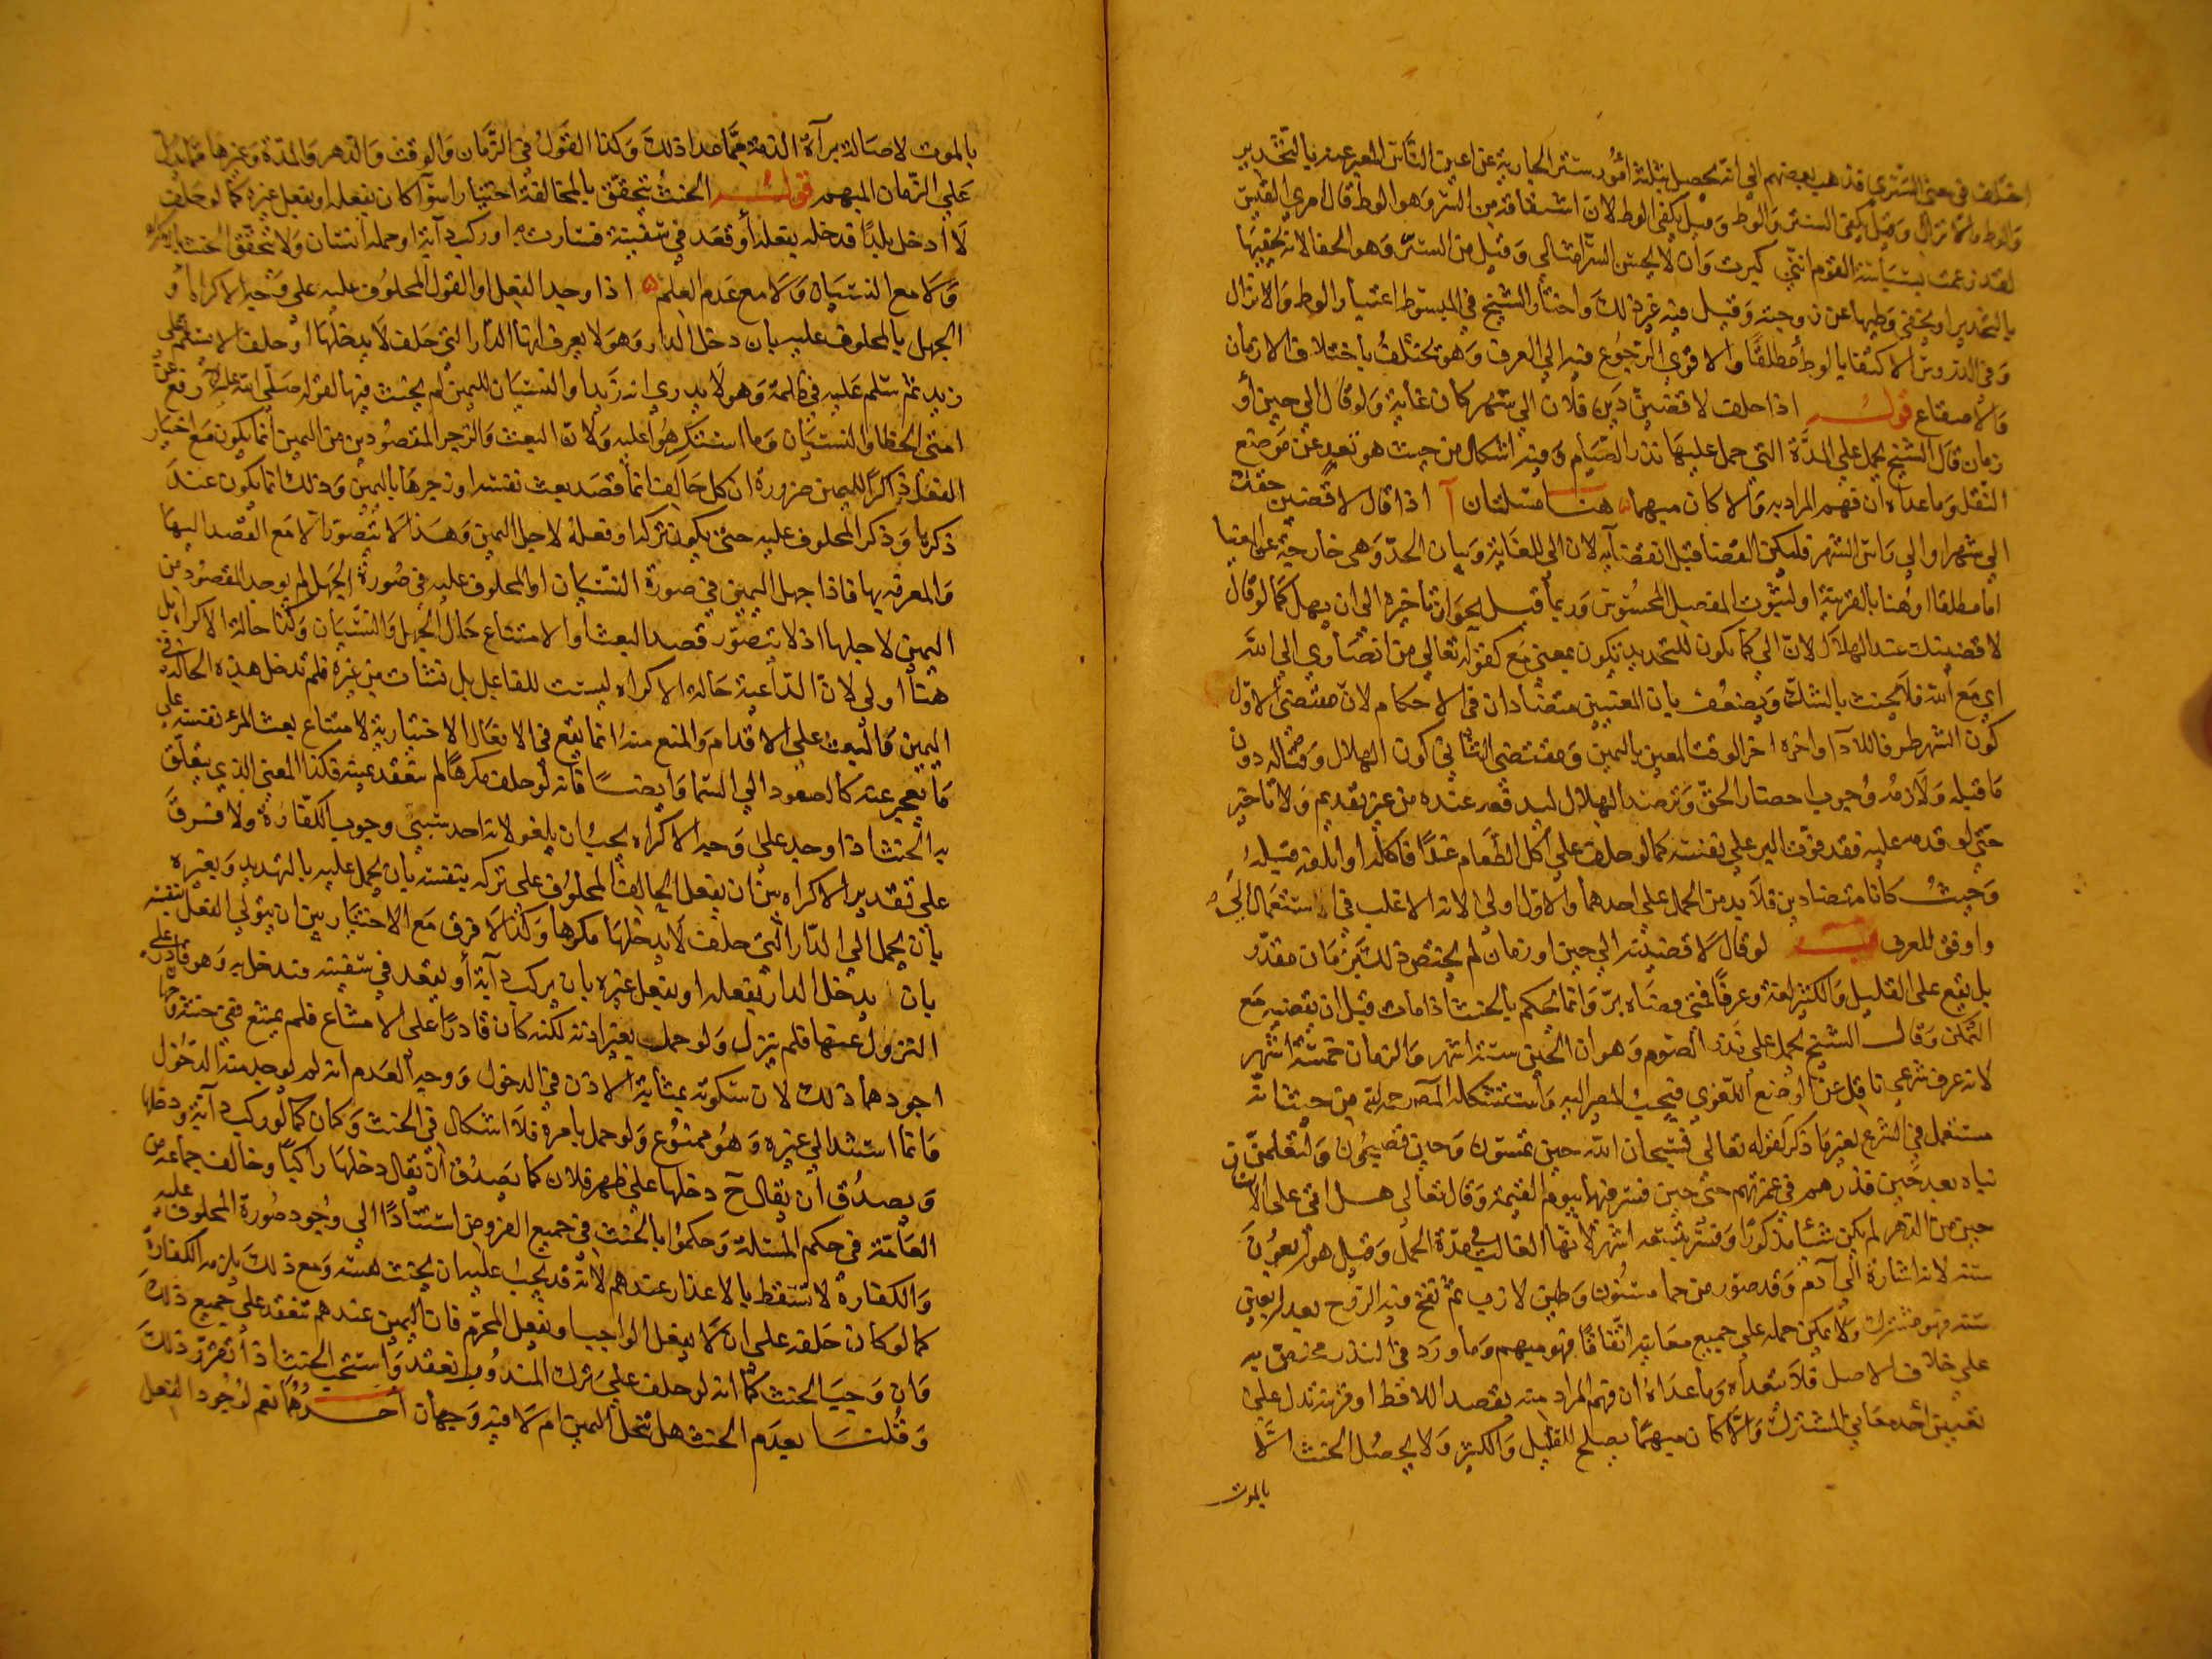 اختلف في معنى التسري فذهب بعضهم الى انه يحصل بثلثة امور ستر الجارية عن اعين الناس المعبر عنه بالتخدير
والوطء والانزال وقيل يكفي الستر والوطء وقيل يكفي الوطء لان اشتقاقه من السر وهو الوطء قال امرئ القيس
لقد زعمت بسباسة القوم انني كبرت وان لا يحسن السر امثالي وقيل من الستر وهو الخفا لانه يخفيها
بالتخدير او يخفي وطيها عن زوجته وقيل فيه غير ذلك واختار الشيخ في المبسوط اعتبار الوطء والانزال
وفي الدروس الاكتفا بالوطء مطلقا والاقوى الرجوع فيه الى العرف وهو يختلف باختلاف الازمان
والاصقاع قوله اذا حلف لاقضين دين فلان الى شهر كان غاية ولو قال الى حين او
زمان قال الشيخ يحمل على المدة التي حمل عليها نذر الصيام وفيه اشكال من حيث هو تعد عن موضع
النقل وما عداه ان فهم المراد به والا كان مبهما هنا مسئلتان آ اذا قال لاقضين حقك
الى شهر او الى راس الشهر فليكن القضا قبل انقضائه لان الى للغاية وبيان الحد وهي خارجة عن المغيا
اما مطلقا او هنا بالقرينة او لثبوت المفصل المحسوس وربما قيل بجواز تاخيره الى ان يهل كما لو قال
لاقضينك عند الهلال لان الى كما يكون للتحديد يكون بمعنى مع كقوله تعالى من انصاري الى الله
اي مع الله فلا يحنث بالشك ويضعف بان المعنيين متضادان في الاحكام لان مقتضى الاول
كون الشهر ظرفا للاداء واخره اخر الوقت المعين باليمين ومقتضى الثاني كون الهلال وقتا له دون
ما قبله ولازمه وجوب احضار الحق وترصد الهلال ليدفعه عنده من غير تقديم ولا تاخير
حتى لو قدمه عليه فقد فوت البر على نفسه كما لو حلف على اكل الطعام غدا فاكله او اتلفه قبله
وحيث كانا متضادين فلا بد من الحمل على احدهما والاول اولى لانه الاغلب في استعمال الى
واوفق للعرف ب لو قال لاقضينه الى حين او زمان لم يختص ذلك بزمان مقدر
بل يقع على القليل والكثير لغة وعرفا فمتى قضاه بر وانما يحكم بالحنث اذا مات قبل ان يقضيه مع
التمكن وقال الشيخ يحمل على نذر الصوم وهو ان الحين ستة اشهر والزمان خمسة اشهر
لانه عرف شرعي ناقل عن الوضع اللغوي فيجب المصير اليه واستشكله المصنف رحمه الله من حيث انه
مستعمل في الشرع لغير ما ذكر كقوله تعالى فسبحان الله حين تمسون وحين تصبحون ولتعلمن
نباه بعد حين فذرهم في غمرتهم حتى حين فسر فيها بيوم القيمة وقال تعالى هل اتى على الانسان
حين من الدهر لم يكن شيئا مذكورا وفسر بتسعة اشهر لانها الغالب في مدة الحمل وقيل هو اربعون
سنة لانه اشارة الى آدم وقد صور من حماء مسنون وطين لازب ثم نفخ فيه الروح بعد اربعين
سنة فهو مشترك ولا يمكن حمله على جميع معانيه اتفاقا فهو مبهم وما ورد في النذر مختص به
على خلاف الاصل فلا يتعداه وما عداه ان فهم المراد منه بقصد اللافظ او قرينة تدل على
تعيين احد معاني المشترك والا كان مبهما يصلح للقليل والكثير ولا يحصل الحنث الا
بالموت
بالموت لاصالة براءة الذمة عما عدا ذلك وكذا القول في الزمان والوقت والدهر والمدة وغيرها مما يدل
على الزمان المبهم قوله الحنث يتحقق بالمخالفة اختيارا سواء كان بفعله او بفعل غيره كما لو حلف
لا ادخل بلدا فدخله بفعله او قعد في سفينة فسارت به او ركب دابة او حمله انسان ولا يتحقق الحنث بالاكراه
ولا مع النسيان ولا مع عدم العلم اذا وجد الفعل او القول المحلوف عليه على وجه الاكراه او
الجهل بالمحلوف عليه بان دخل الدار وهو لا يعرف انها الدار التي حلف لا يدخلها او حلف لا يسلم على
زيد ثم سلم عليه في ظلمة وهو لا يدري انه زيد او النسيان لليمين لم يحنث فيها لقوله صلى الله عليه رفع عن
امتي الخطا والنسيان وما استكرهوا عليه ولان البعث والزجر المقصودين من اليمين انما يكون مع اختيار
الفعل ذاكرا لليمين ضرورة ان كل حالف انما قصد بعث نفسه او زجرها باليمين وذلك انما يكون عند
ذكرها وذكر المحلوف عليه حتى يكون تركه او فعله لاجل اليمين وهذا لا يتصور الا مع القصد اليها
والمعرفة بها فاذا جهل اليمين في صورة النسيان او المحلوف عليه في صورة الجهل لم يوجد المقصود من
اليمين لاجلها اذ لا يتصور قصد البعث او الامتناع حال الجهل والنسيان وكذا حالة الاكراه بل
هنا اولى لان الداعية حالة الاكراه ليست للفاعل بل نشات من غيره فلم تدخل هذه الحالة في
اليمين فالبعث على الاقدام والمنع منه انما يقع في الافعال الاختيارية لامتناع بعث المرء نفسه على
ما يعجز عنه كالصعود الى السما وايضا فانه لو حلف مكرها لم تنعقد يمينه فكذا المعنى الذي يتعلق
به الحنث اذا وجد على وجه الاكراه يجب ان يلغو لانه احد سببي وجوب الكفارة ولا فرق
على تقدير الاكراه بين ان يفعل الحالف المحلوف على تركه بنفسه بان يحمل عليه بالتهديد وبغيره
بان يحمل الى الدار التي حلف لا يدخلها مكرها وكذا لا فرق مع الاختيار بين ان يتولى الفعل بنفسه
بان يدخل الدار بفعله او بفعل غيره بان يركب دابة او يقعد في سفينة فتدخل به وهو قادر على
النزول عنها فلم ينزل ولو حمل بغير اذنه لكنه كان قادرا على الامتناع فلم يمتنع ففي حنثه وجهان
اجودهما ذلك لان سكوته بمثابة الاذن في الدخول ووجه العدم انه لم يوجد منه الدخول
وانما استند الى غيره وهو ممنوع ولو حمل بامره فلا اشكال في الحنث وكان كما لو ركب دابة ودخلها
ويصدق ان يقال ح دخلها على ظهر فلان كما يصدق ان يقال دخلها راكبا وخالف جماعة من
العامة في حكم المسئلة وحكموا بالحنث في جميع الفروض استنادا الى وجود صورة المحلوف عليه
والكفارة لا تسقط بالاعذار عندهم لانه قد يجب عليه ان يحنث نفسه ومع ذلك يلزمه الكفارة
كما لو كان حلفه على ان لا يفعل الواجب او يفعل المحرم فان اليمين عندهم تنعقد على جميع ذلك
وان وجب الحنث كما انه لو حلف على ترك المندوب انعقد واستحب الحنث اذا تقرر ذلك
وقلنا بعدم الحنث هل تنحل اليمين ام لا فيه وجهان احدهما نعم لوجود الفعل